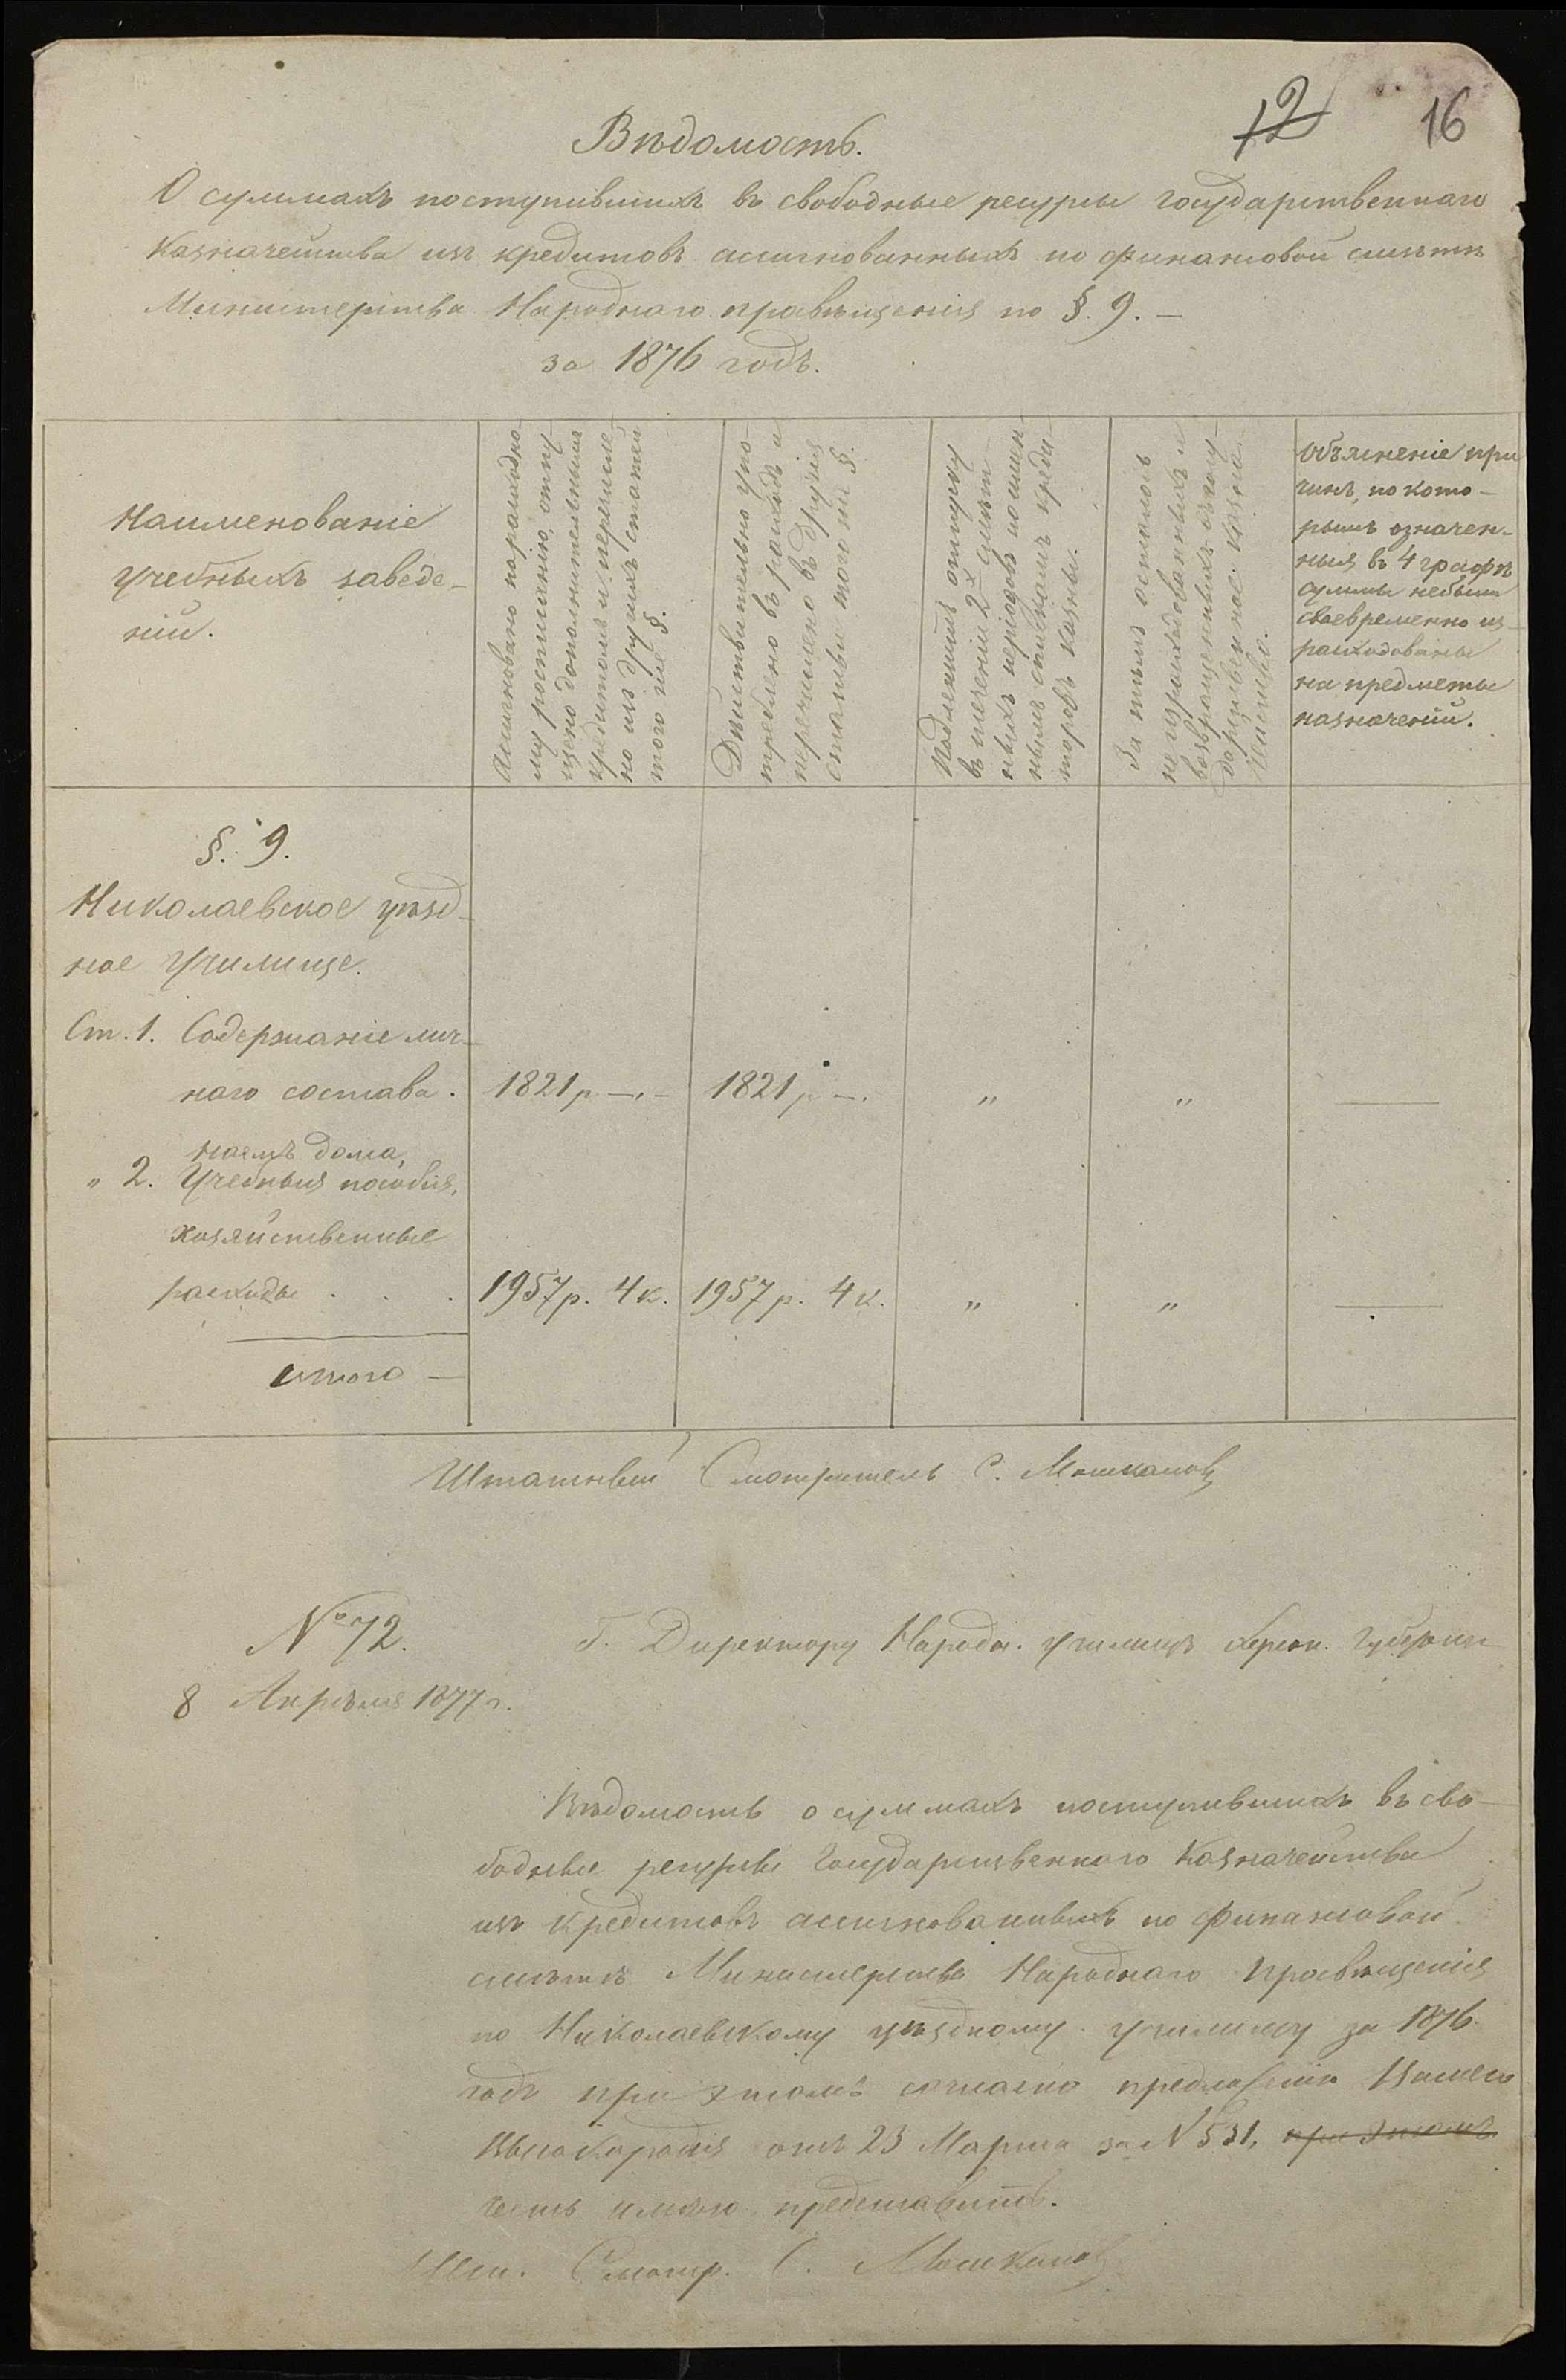 12 16
Вѣдомость.
О суммахъ поступившихъ въ свободные ресурсы Государственнаго
Казначейства изъ кредитовъ ассигнованныхъ по финансовой смѣтѣ
Министерства Народнаго просвѣщенія по §. 9. —
за 1876 годъ.
Наименованіе
учебныхъ заведе-
ній.
Ассигновано по расходно-
му росписанію, отпу-
щено дополнительнымъ
кредитомъ и перечисле-
но изъ другихъ статей
того же §.
Дѣйствительно упо-
треблено въ расходъ и
перечислено въ другія
статьи того же §.
Подлежитъ отпуску
въ теченіи 2х смѣт-
ныхъ періодовъ по имен-
нымъ спискамъ креди-
торовъ казны.
За тѣмъ осталось
не израсходованныхъ и
возвращенныхъ въ Госу-
дарственное Казна-
чейство.
Объясненіе при
чинъ, по кото-
рымъ означен-
ныя въ 4 графѣ
суммы не были
своевременно из-
расходованы
на предметы
назначеній.
§. 9.
Николаевское уѣзд-
ное Училище.
Ст. 1. Содержаніе лич-
наго состава. 1821 р. — 1821 р. — „ „ —
наемъ дома,
„ 2. Учебныя пособія,
хозяйственные
расходы . . . 1957 р. 4 к. 1957 р. 4 к. „ „ —
итого —
Штатный Смотритель С.
№ 72. Г. Директору Народн. училищъ Херсон. Губерніи
8 Апрѣля 1877 г.
Вѣдомость о суммахъ поступившихъ въ сво-
бодные ресурсы Государственнаго Казначейства
изъ кредитовъ ассигнованныхъ по финансовой
смѣтѣ Министерства Народнаго Просвѣщенія
по Николаевскому уѣздному училищу за 1876
годъ при этомъ согласно предложенію Вашего
Высокородія отъ 23 Марта за № 531, при этомъ
честь имѣю представить.
Шт. Смотр. С.